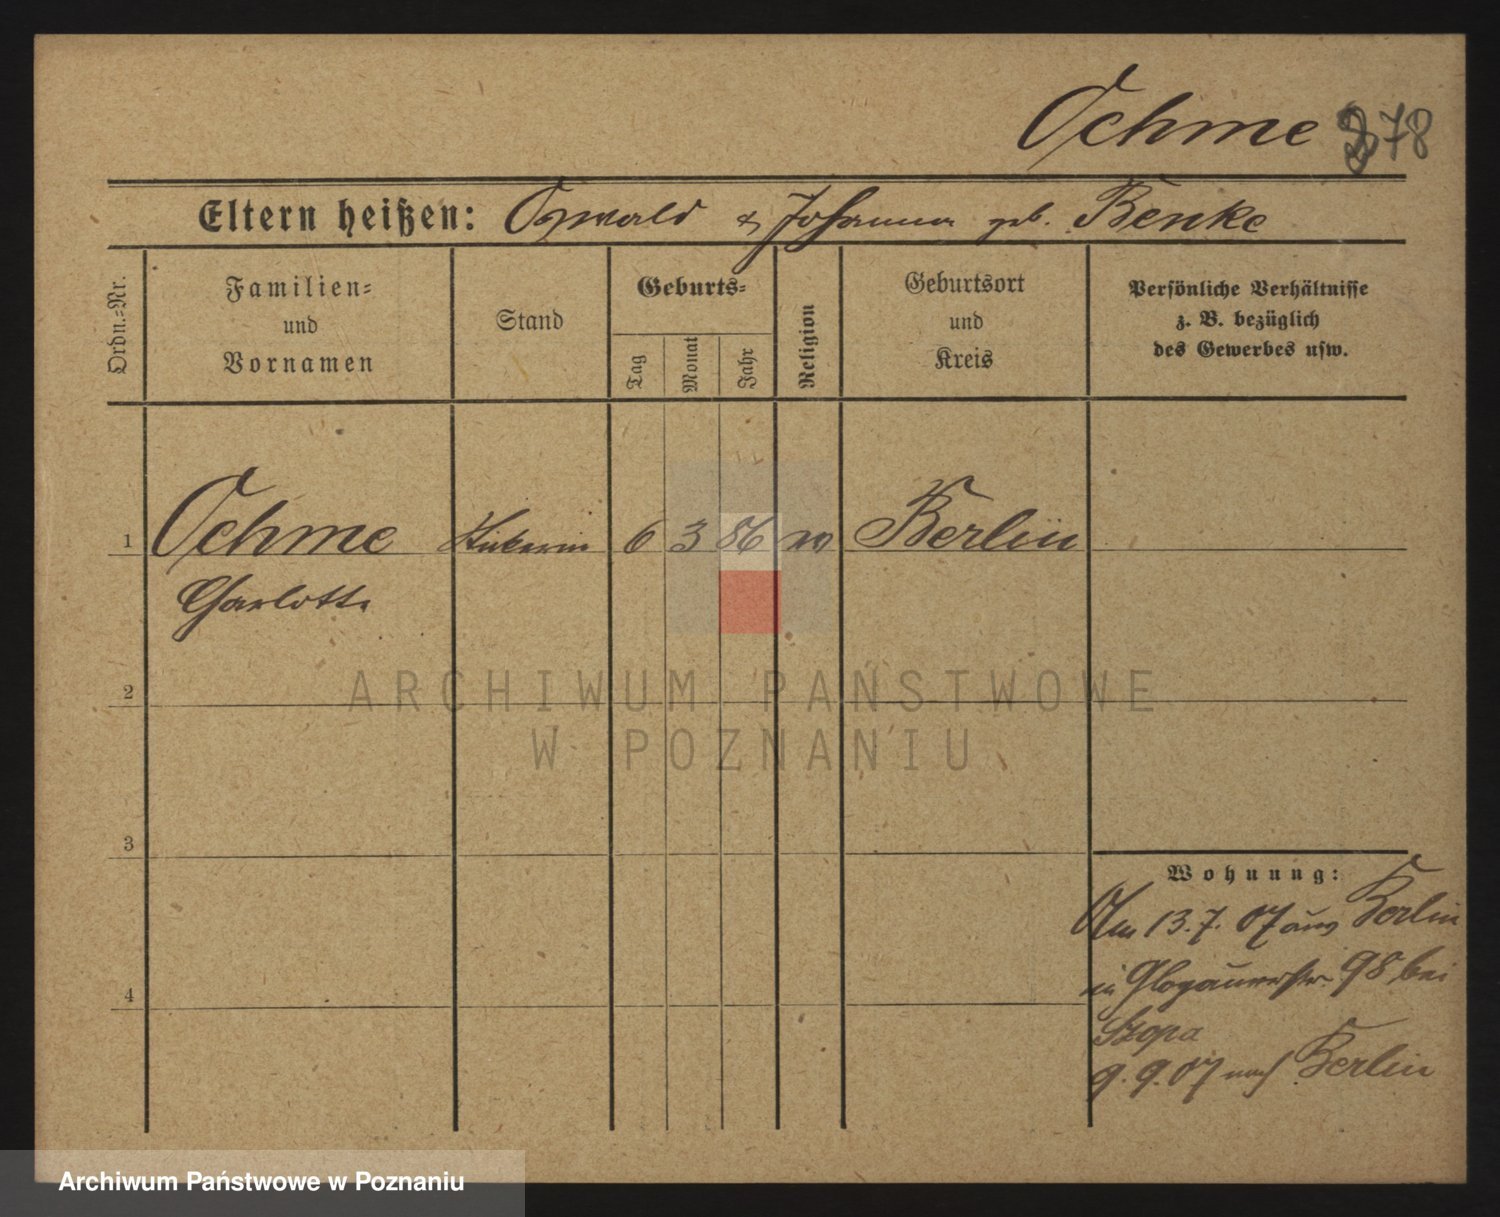 Oehme 378
Eltern heißen: Oswald & Johanna geb. Benke
Ordn.-Nr.
Familien-
und
Vornamen
Stand
Geburts-
Tag
Monat
Jahr
Religion
Geburtsort
und
Kreis
Persönliche Verhältnisse
z. B. bezüglich
des Gewerbes usw.
1 Oehme 6 3 86 Berlin
Charlotte
2
3
4
Wohnung:
Am 13.7.07 aus Berlin
in Glogauerstr. 98 bei
Szopa
9.9.07 nach Berlin
ARCHIWUM PAŃSTWOWE
W POZNANIU
Archiwum Państwowe w Poznaniu